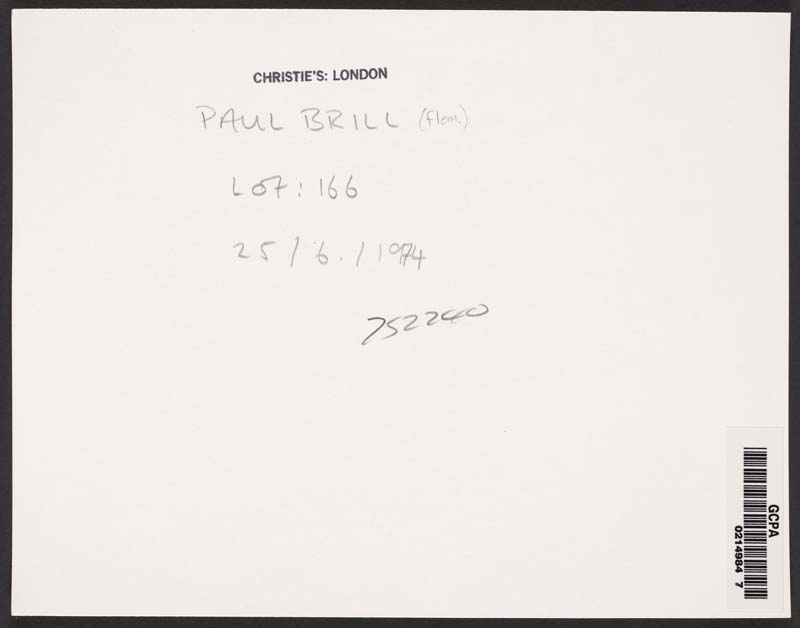 CHRISTIE'S: LONDON
PAUL BRILL (Flem.)
LOT: 166
25/6./1974
752240
GCPA
0214984 7